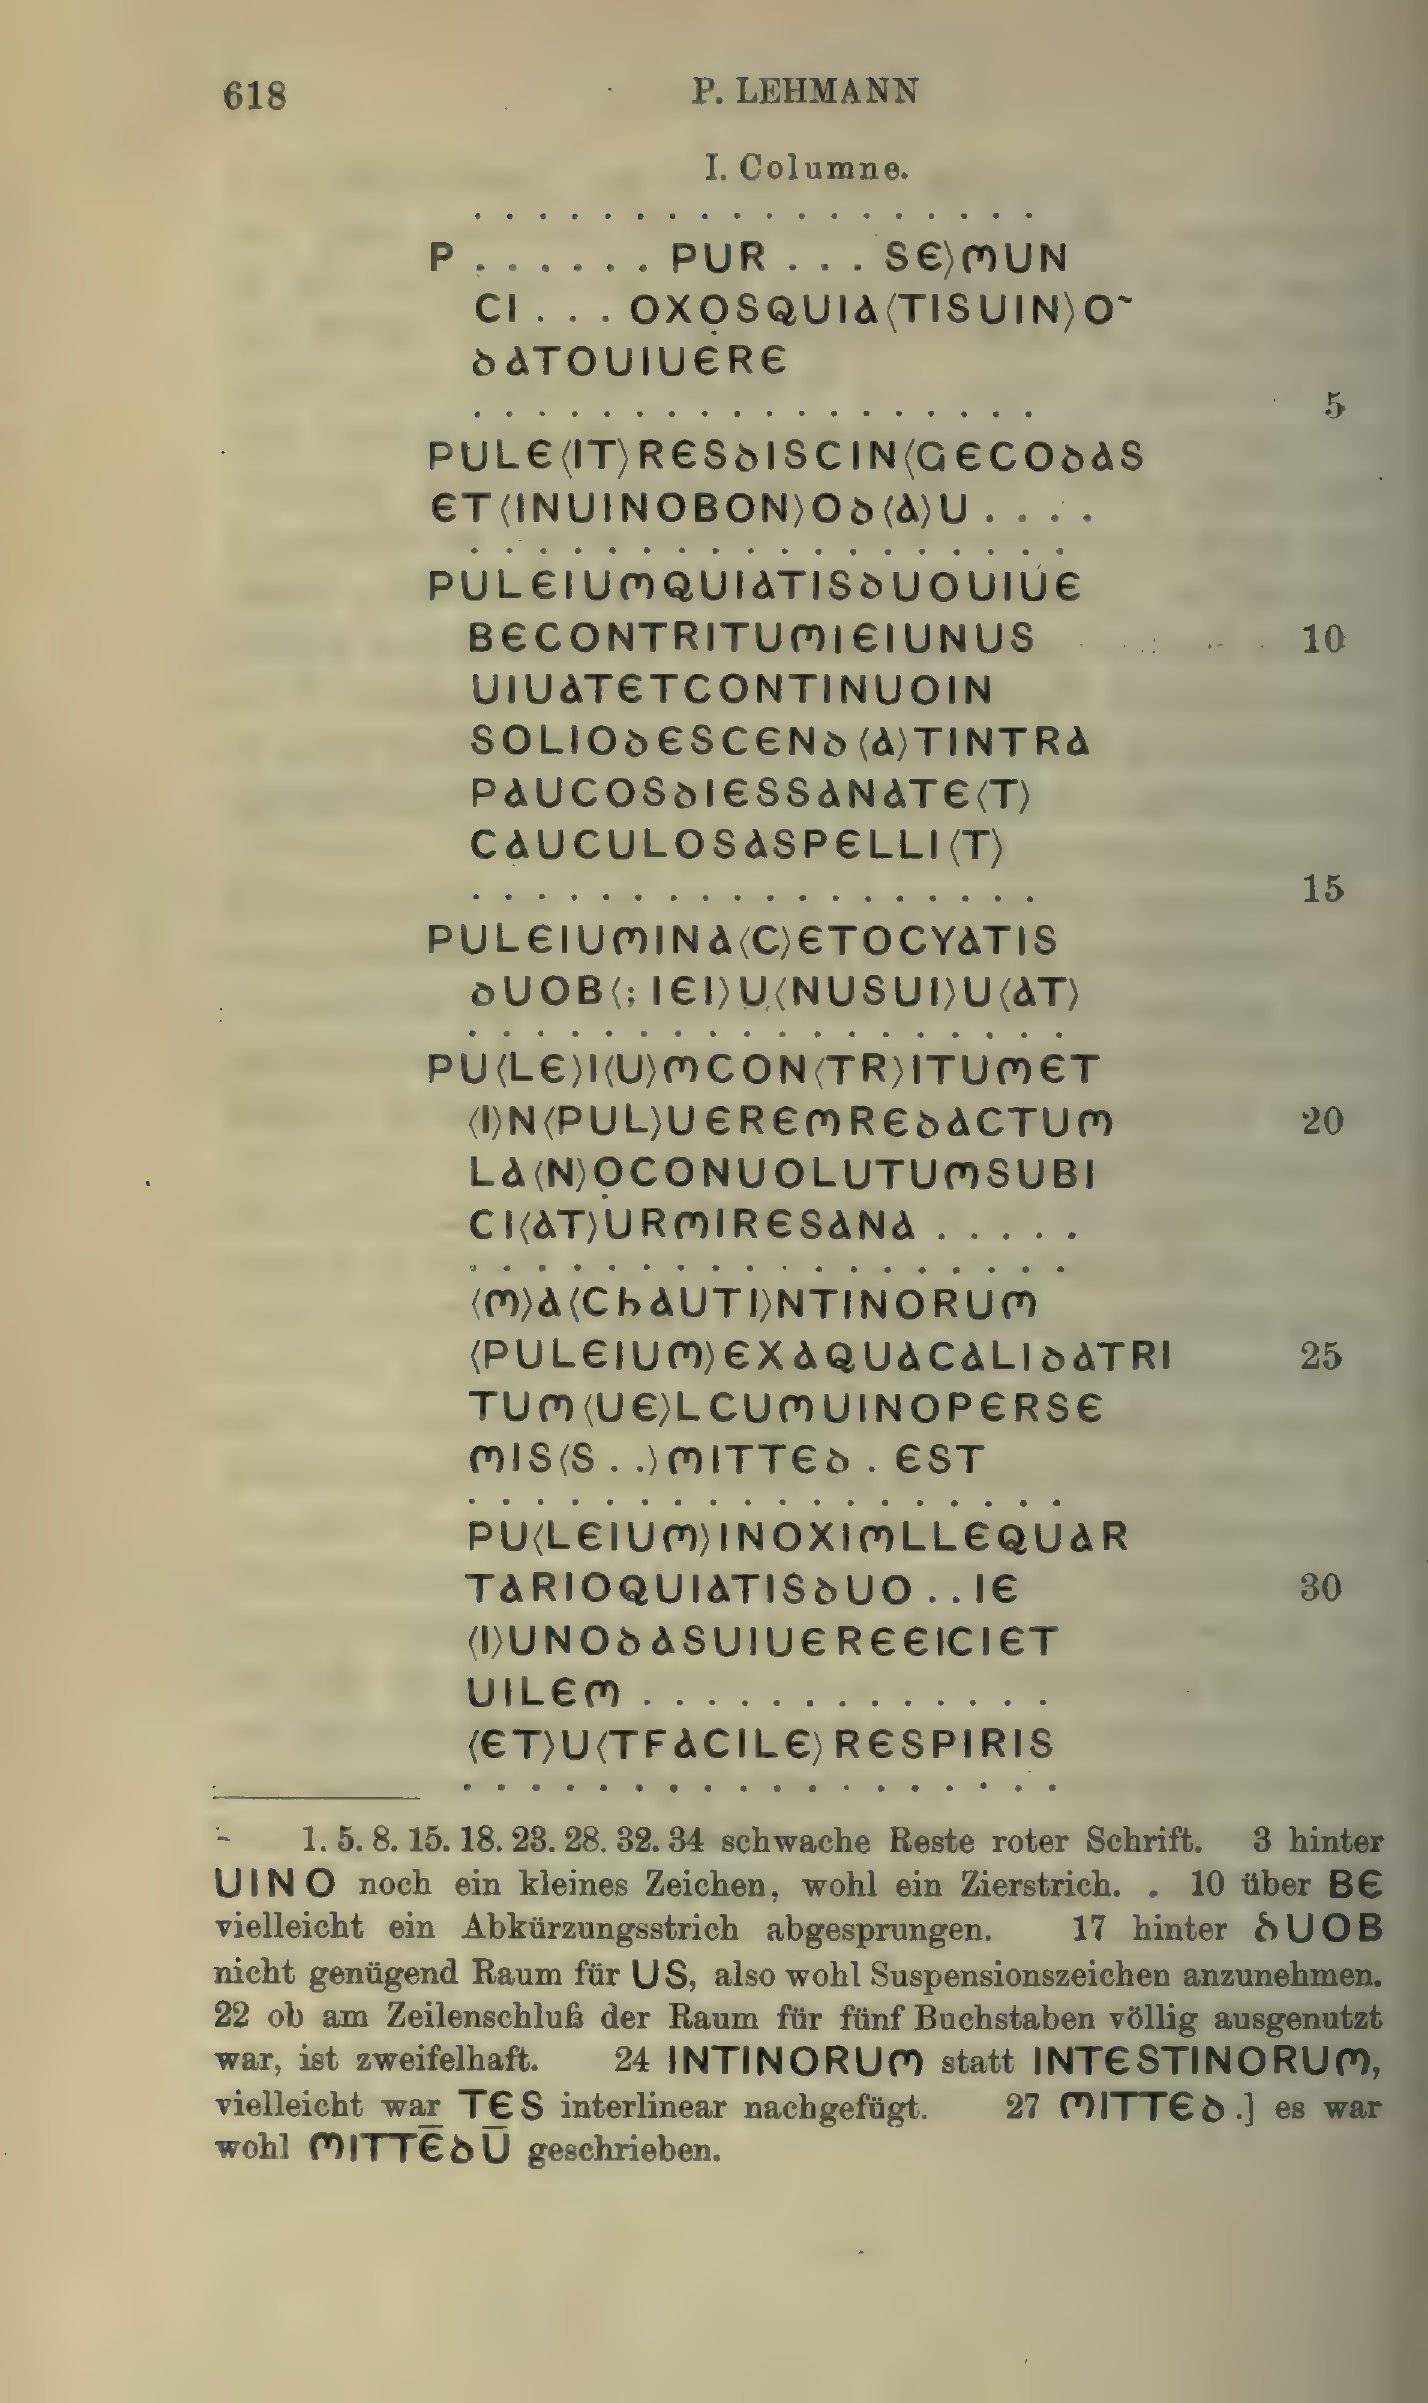 618 P. LEHMANN
I. Columne.
. . . . . . . . . . . . . . . . . .
P . . . . . . PUR . . . SE⟩MUN
CI . . . OXỌSQUIA⟨TISUIN⟩O~
DATOUIUERE
. . . . . . . . . . . . . . . . . . 5
PULE⟨IT⟩RESDISCIN⟨GECODAS
ET⟨INUINOBON⟩OD⟨A⟩U . . . .
. . . . . . . . . . . . . . . . . . .
PULEIUMQUIATISDUOUIUE
BECONTRITUMIEIUNUS 10
UIUATETCONTINUOIN
SOLIODESCEND⟨A⟩TINTRA
PAUCOSDIESSANATE⟨T⟩
CAUCULOSASPELLI⟨T⟩
. . . . . . . . . . . . . . . . . . 15
PULEIUMINA⟨C⟩ETOCYATIS
DUOB⟨; IEI⟩Ụ⟨NUSUI⟩U⟨AT⟩
. . . . . . . . . . . . . . . . . . .
PU⟨LE⟩I⟨U⟩MCON⟨TR⟩ITUMET
⟨I⟩N⟨PUL⟩UEREMREDACTUM 20
LA⟨N⟩ỌCONUOLUTUMSUBI
CI⟨AT⟩URMIRESANA . . . . .
. . . . . . . . . . . . . . . . . . .
⟨M⟩A⟨CHAUTI⟩NTINORUM
⟨PULEIUM⟩EXAQUACALIDATRI 25
TUM⟨UE⟩LCUMUINOPERSE
MIS⟨S . .⟩MITTED . EST
. . . . . . . . . . . . . . . . . . .
PU⟨LEIUM⟩INOXIMLLEQUAR
TARIOQUIATISDUO . . IE 30
⟨I⟩UNODASUIUEREEICIET
UILEM . . . . . . . . . . . . .
⟨ET⟩U⟨TFACILE⟩RESPIRIS
. . . . . . . . . . . . . . . . . . .
1. 5. 8. 15. 18. 23. 28. 32. 34 schwache Reste roter Schrift. 3 hinter
UINO noch ein kleines Zeichen, wohl ein Zierstrich. . 10 über BE
vielleicht ein Abkürzungsstrich abgesprungen. 17 hinter DUOB
nicht genügend Raum für US, also wohl Suspensionszeichen anzunehmen.
22 ob am Zeilenschluß der Raum für fünf Buchstaben völlig ausgenutzt
war, ist zweifelhaft. 24 INTINORUM statt INTESTINORUM,
vielleicht war TES interlinear nachgefügt. 27 MITTED .] es war
wohl MITTĒDŪ geschrieben.